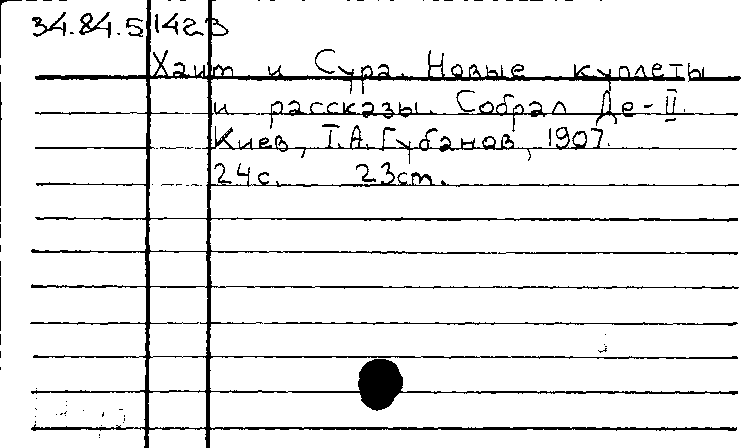 34.84.5 1423
Хаит и Сура. Новые куплеты
и рассказы. Собрал Де-II.
Киев, Т.А.Губанов, 1907.
24с. 23cm.